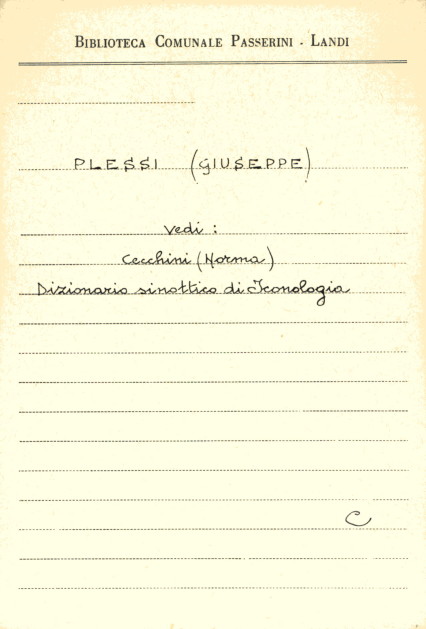 BIBLIOTECA COMUNALE PASSERINI - LANDI
PLESSI (GIUSEPPE)
Vedi :
Cecchini (Norma)
Dizionario sinottico di Iconologia
C